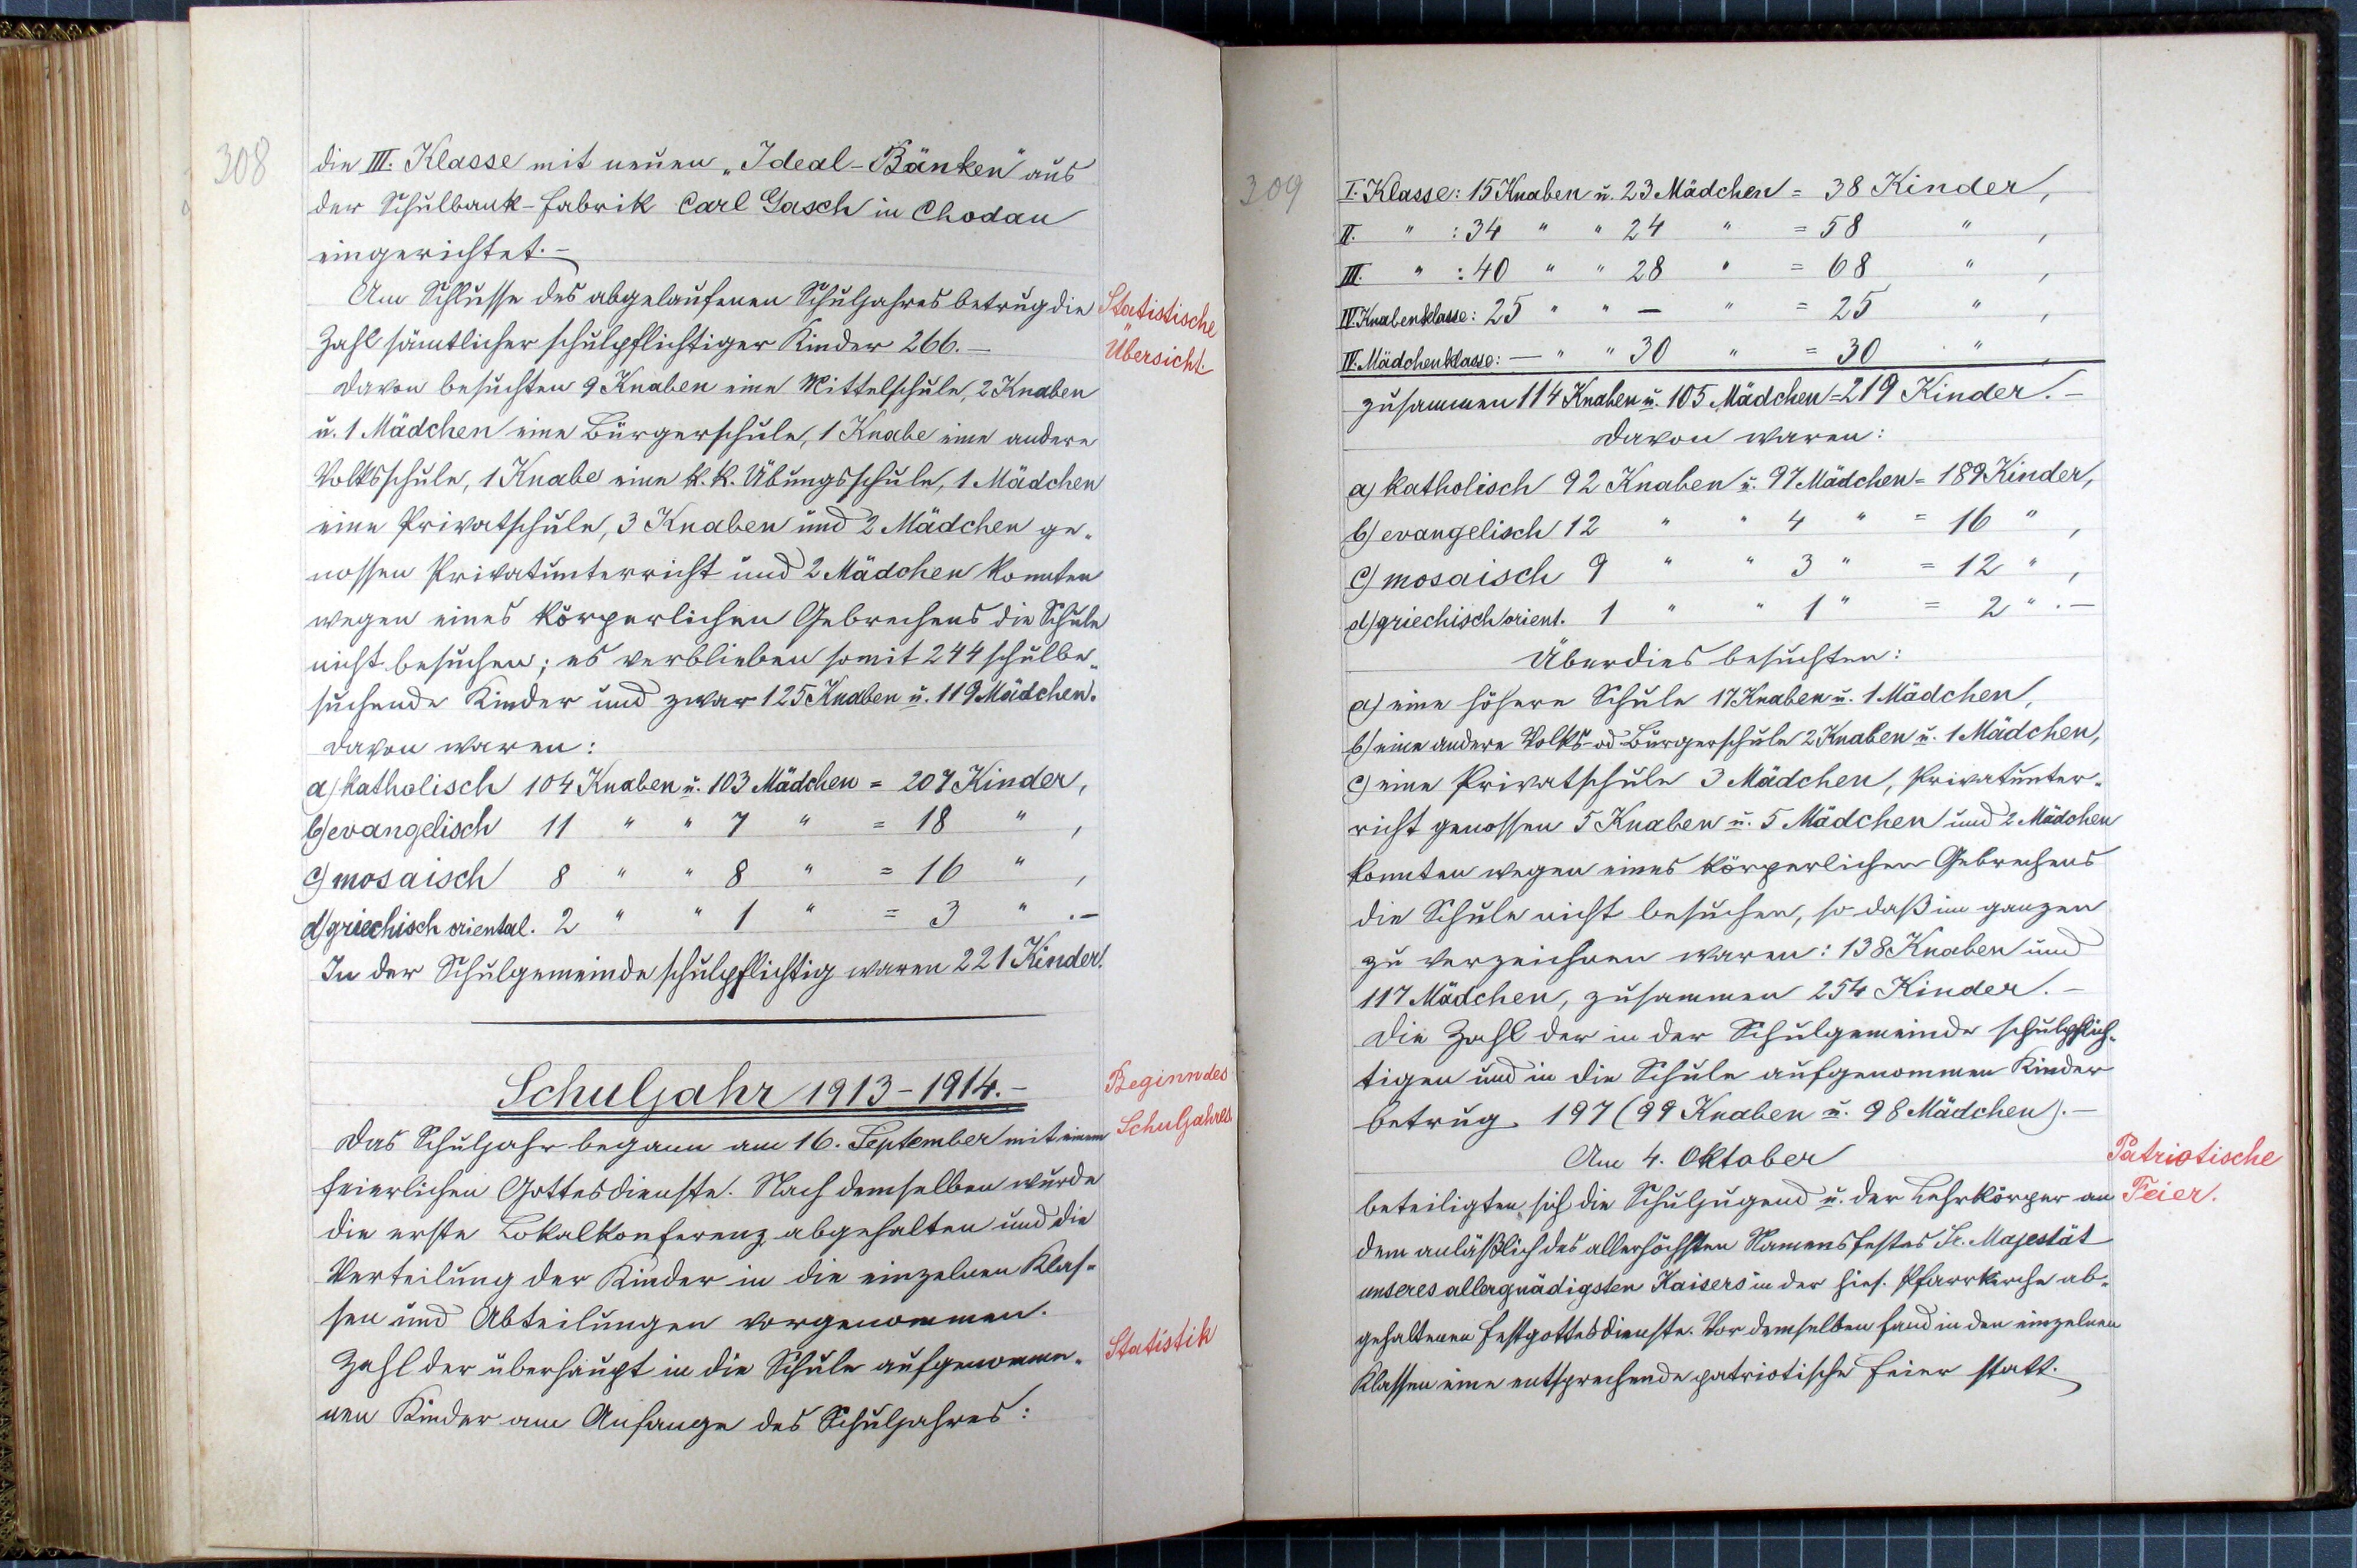 308
die III. Klasse mit neuen „Ideal-Bänken" aus
der Schulbank-Fabrik Carl Gasch in Chodau
eingerichtet.—
Am Schlusse des abgelaufenen Schuljahres betrug die
Statistische
Zahl sämtlicher schulpflichtiger Kinder 266.—
Übersicht.
Davon besuchten 9 Knaben eine Mittelschule, 2 Knaben
u. 1 Mädchen eine Bürgerschule, 1 Knabe eine andere
Volksschule, 1 Knabe eine k. k. Übungsschule, 1 Mädchen
eine Privatschule, 3 Knaben und 2 Mädchen ge-
nossen Privatunterricht und 2 Mädchen konnten
wegen eines körperlichen Gebrechens die Schule
nicht besuchen; es verblieben somit 244 schulbe-
suchende Kinder und zwar 125 Knaben u. 119 Mädchen.
Davon waren:
a) katholisch 104 Knaben u. 103 Mädchen = 207 Kinder,
b) evangelisch 11 " " 7 " = 18 " ,
c) mosaisch 8 " " 8 " = 16 " ,
d) griechisch oriental. 2 " " 1 " = 3 " .—
In der Schulgemeinde schulpflichtig waren 221 Kinder.
Schuljahr 1913-1914.—
Beginn des
Schuljahres
Das Schuljahr begann am 16. September mit einem
feierlichen Gottesdienste. Nach demselben wurde
die erste Lokalkonferenz abgehalten und die
Verteilung der Kinder in die einzelnen Klas-
sen und Abteilungen vorgenommen.
Statistik
Zahl der überhaupt in die Schule aufgenomme-
nen Kinder am Anfange des Schuljahres:
309
I. Klasse: 15 Knaben u. 23 Mädchen = 38 Kinder,
II. " : 34 " " 24 " = 58 " ,
III. " : 40 " " 28 " = 68 " ,
IV. Knabenklasse: 25 " " — " = 25 " ,
IV. Mädchenklasse: — " " 30 " = 30 " ,
zusammen 114 Knaben u. 105 Mädchen = 219 Kinder.—
Davon waren:
a) katholisch 92 Knaben u. 97 Mädchen = 189 Kinder,
b) evangelisch 12 " " 4 " = 16 " ,
c) mosaisch 9 " " 3 " = 12 " ,
d) griechisch orient. 1 " " 1 " = 2 " .—
Überdies besuchten:
a) eine höhere Schule 17 Knaben u. 1 Mädchen,
b) eine andere Volks- od. Bürgerschule 2 Knaben u. 1 Mädchen,
c) eine Privatschule 3 Mädchen, Privatunter-
richt genossen 5 Knaben u. 5 Mädchen und 2 Mädchen
konnten wegen eines körperlichen Gebrechens
die Schule nicht besuchen, so daß im ganzen
zu verzeichnen waren: 138 Knaben und
117 Mädchen, zusammen 254 Kinder.—
Die Zahl der in der Schulgemeinde schulpflich-
tigen und in die Schule aufgenommen Kinder
betrug 197 (99 Knaben u. 98 Mädchen).—
Am 4. Oktober
Patriotische
Feier.
beteiligten sich die Schuljugend u. der Lehrkörper an
dem anläßlich des allerhöchsten Namensfestes Sr. Majestät
unseres allergnädigsten Kaisers in der hies. Pfarrkirche ab-
gehaltenen Festgottesdienste. Vor demselben fand in den einzelnen
Klassen eine entsprechende patriotische Feier statt.